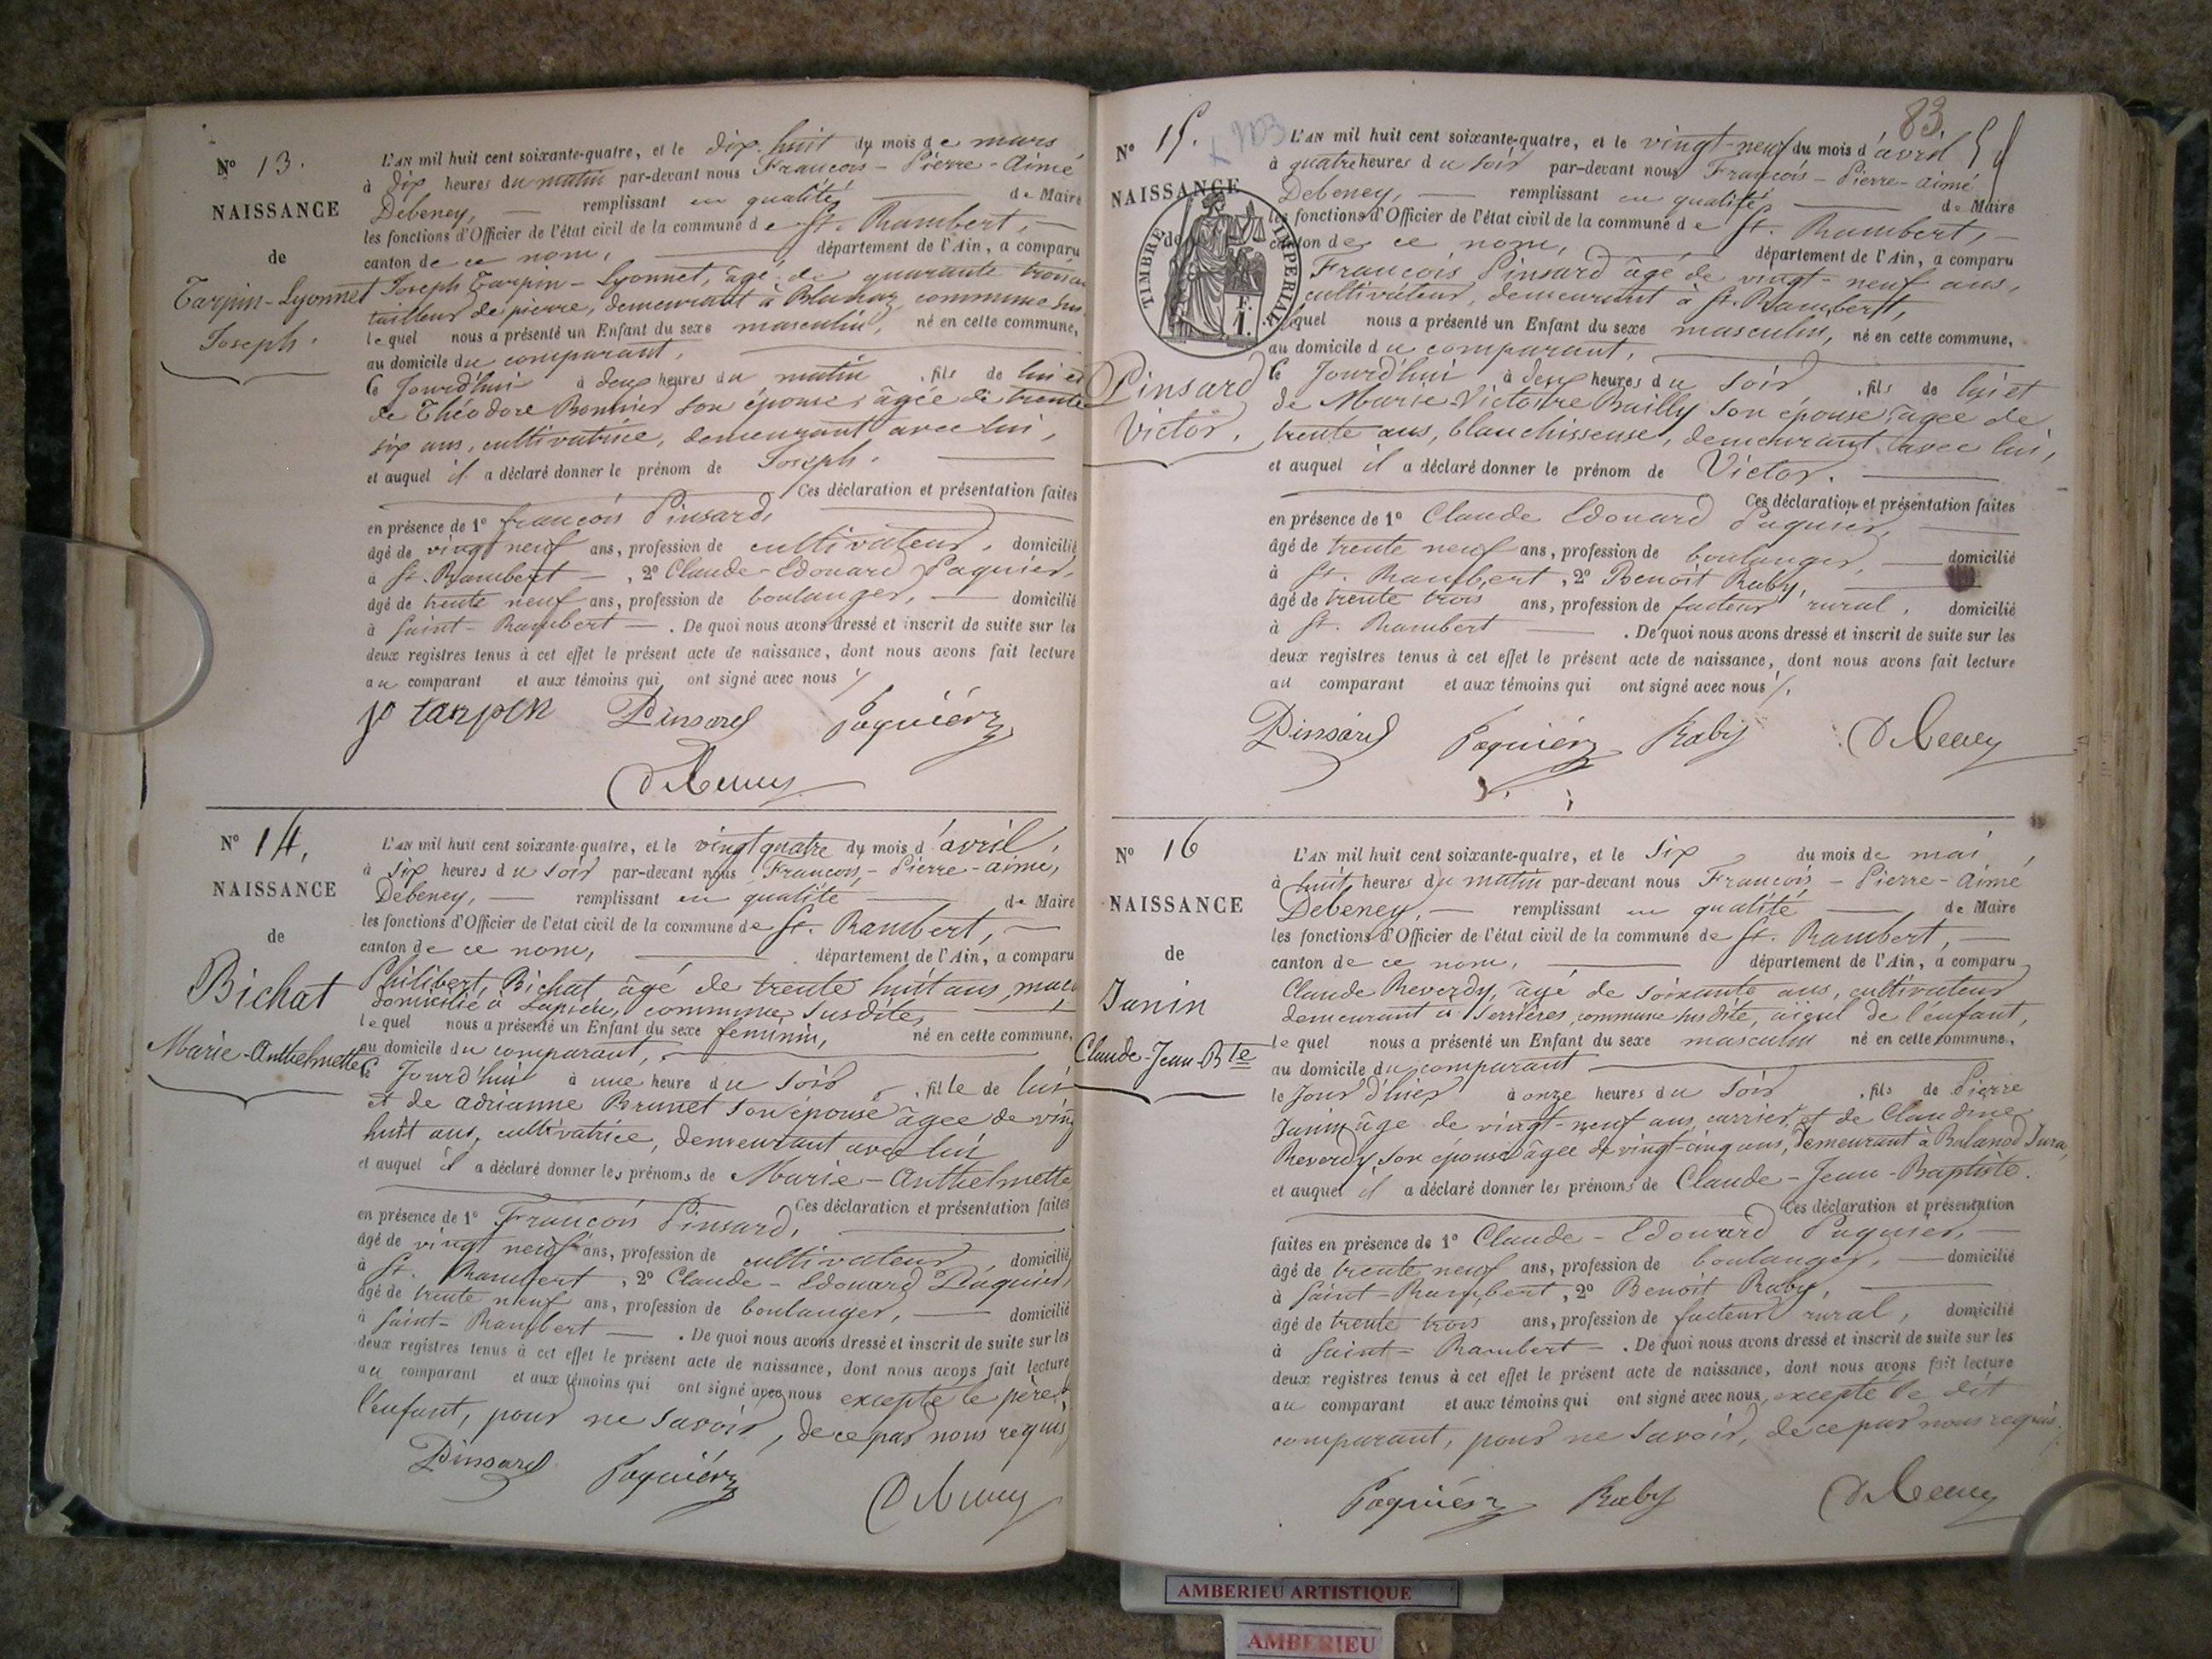 N° 13.
NAISSANCE
de
Tarpin-Lyonnet
Joseph.
L'AN mil huit cent soixante-quatre, et le dix huit du mois de mars
à dix heures du matin par-devant nous François-Pierre-Aimé
Debeney, remplissant en qualité de Maire
les fonctions d'Officier de l'état civil de la commune de St. Rambert,
canton de ce nom, département de l'Ain, a comparu
Joseph Tarpin-Lyonnet, âgé de quarante trois
tailleur de pierre, demeurant à commune
lequel nous a présenté un Enfant du sexe masculin, né en cette commune,
au domicile du comparant,
Ce Jourd'hui à deux heures du matin, fils de lui et
de Théodore Bonnier son épouse, âgée de trente
six ans, cultivatrice, demeurant avec lui,
et auquel il a déclaré donner le prénom de Joseph.
Ces déclaration et présentation faites
en présence de 1° françois Pinsard,
âgé de vingt neuf ans, profession de cultivateur, domicilié
à St. Rambert, 2° Claude-Edouard Paquier,
âgé de trente neuf ans, profession de boulanger, domicilié
à Saint-Rambert. De quoi nous avons dressé et inscrit de suite sur les
deux registres tenus à cet effet le présent acte de naissance, dont nous avons fait lecture
au comparant et aux témoins qui ont signé avec nous
jo tarpin Pinsard Paquier
Debeney
N° 14.
NAISSANCE
de
Bichat
Marie-Anthelmette
L'AN mil huit cent soixante-quatre, et le vingt quatre du mois d'avril,
à six heures du soir par-devant nous François-Pierre-aimé,
Debeney, remplissant en qualité de Maire
les fonctions d'Officier de l'état civil de la commune de St. Rambert,
canton de ce nom, département de l'Ain, a comparu
Philibert Bichat âgé de trente huit ans,
domicilié à commune susdite,
lequel nous a présenté un Enfant du sexe féminin, né en cette commune,
au domicile du comparant,
Ce Jourd'hui à une heure du soir, fille de lui
et de adrianne Brunet son épouse âgée de
huit ans, cultivatrice, demeurant avec lui
et auquel il a déclaré donner les prénoms de Marie-Anthelmette
Ces déclaration et présentation faites
en présence de 1° François Pinsard,
âgé de vingt neuf ans, profession de cultivateur, domicilié
à St. Rambert, 2° Claude-Edouard Paquier,
âgé de trente neuf ans, profession de boulanger, domicilié
à Saint-Rambert. De quoi nous avons dressé et inscrit de suite sur les
deux registres tenus à cet effet le présent acte de naissance, dont nous avons fait lecture
au comparant et aux témoins qui ont signé avec nous excepté le père
l'enfant, pour ne savoir, de ce par nous requis
Pinsard Paquier
Debeney
83
N° 15.
NAISSANCE
de
TIMBRE IMPERIAL
F. 1.
Pinsard
Victor.
L'AN mil huit cent soixante-quatre, et le vingt-neuf du mois d'avril
à quatre heures du soir par-devant nous François-Pierre-aimé
Debeney, remplissant en qualité de Maire
les fonctions d'Officier de l'état civil de la commune de St. Rambert,
canton de ce nom, département de l'Ain, a comparu
François Pinsard âgé de vingt-neuf ans,
cultivateur, demeurant à St. Rambert,
lequel nous a présenté un Enfant du sexe masculin, né en cette commune,
au domicile du comparant,
Ce Jourd'hui à deux heures du soir, fils de lui et
de Marie-Victoire Bailly son épouse, âgée de
trente ans, blanchisseuse, demeurant avec lui,
et auquel il a déclaré donner le prénom de Victor.
Ces déclaration et présentation faites
en présence de 1° Claude Edouard Paquier,
âgé de trente neuf ans, profession de boulanger, domicilié
à St. Rambert, 2° Benoit Raby,
âgé de trente trois ans, profession de facteur rural, domicilié
à St. Rambert. De quoi nous avons dressé et inscrit de suite sur les
deux registres tenus à cet effet le présent acte de naissance, dont nous avons fait lecture
au comparant et aux témoins qui ont signé avec nous
Pinsard Paquier Raby Debeney
N° 16
NAISSANCE
de
Janin
Claude-Jean-Bte
L'AN mil huit cent soixante-quatre, et le six du mois de mai,
à huit heures du matin par-devant nous François-Pierre-Aimé
Debeney, remplissant en qualité de Maire
les fonctions d'Officier de l'état civil de la commune de St. Rambert,
canton de ce nom, département de l'Ain, a comparu
Claude Reverdy, âgé de soixante ans, cultivateur
demeurant à Serrières, commune susdite, aieul de l'enfant,
lequel nous a présenté un Enfant du sexe masculin né en cette commune,
au domicile du comparant
le Jour d'hier à onze heures du soir, fils de Pierre
Janin âgé de vingt-neuf ans, carrier, et de Claudine
Reverdy, son épouse âgée de vingt-cinq ans, demeurant à Balanod Jura,
et auquel il a déclaré donner les prénoms de Claude-Jean-Baptiste.
Ces déclaration et présentation
faites en présence de 1° Claude-Edouard Paquier,
âgé de trente neuf ans, profession de boulanger, domicilié
à Saint-Rambert, 2° Benoit Raby,
âgé de trente trois ans, profession de facteur rural, domicilié
à Saint-Rambert. De quoi nous avons dressé et inscrit de suite sur les
deux registres tenus à cet effet le présent acte de naissance, dont nous avons fait lecture
au comparant et aux témoins qui ont signé avec nous, excepté le dit
comparant, pour ne savoir, de ce par nous requis.
Paquier Raby Debeney
AMBERIEU ARTISTIQUE
AMBERIEU